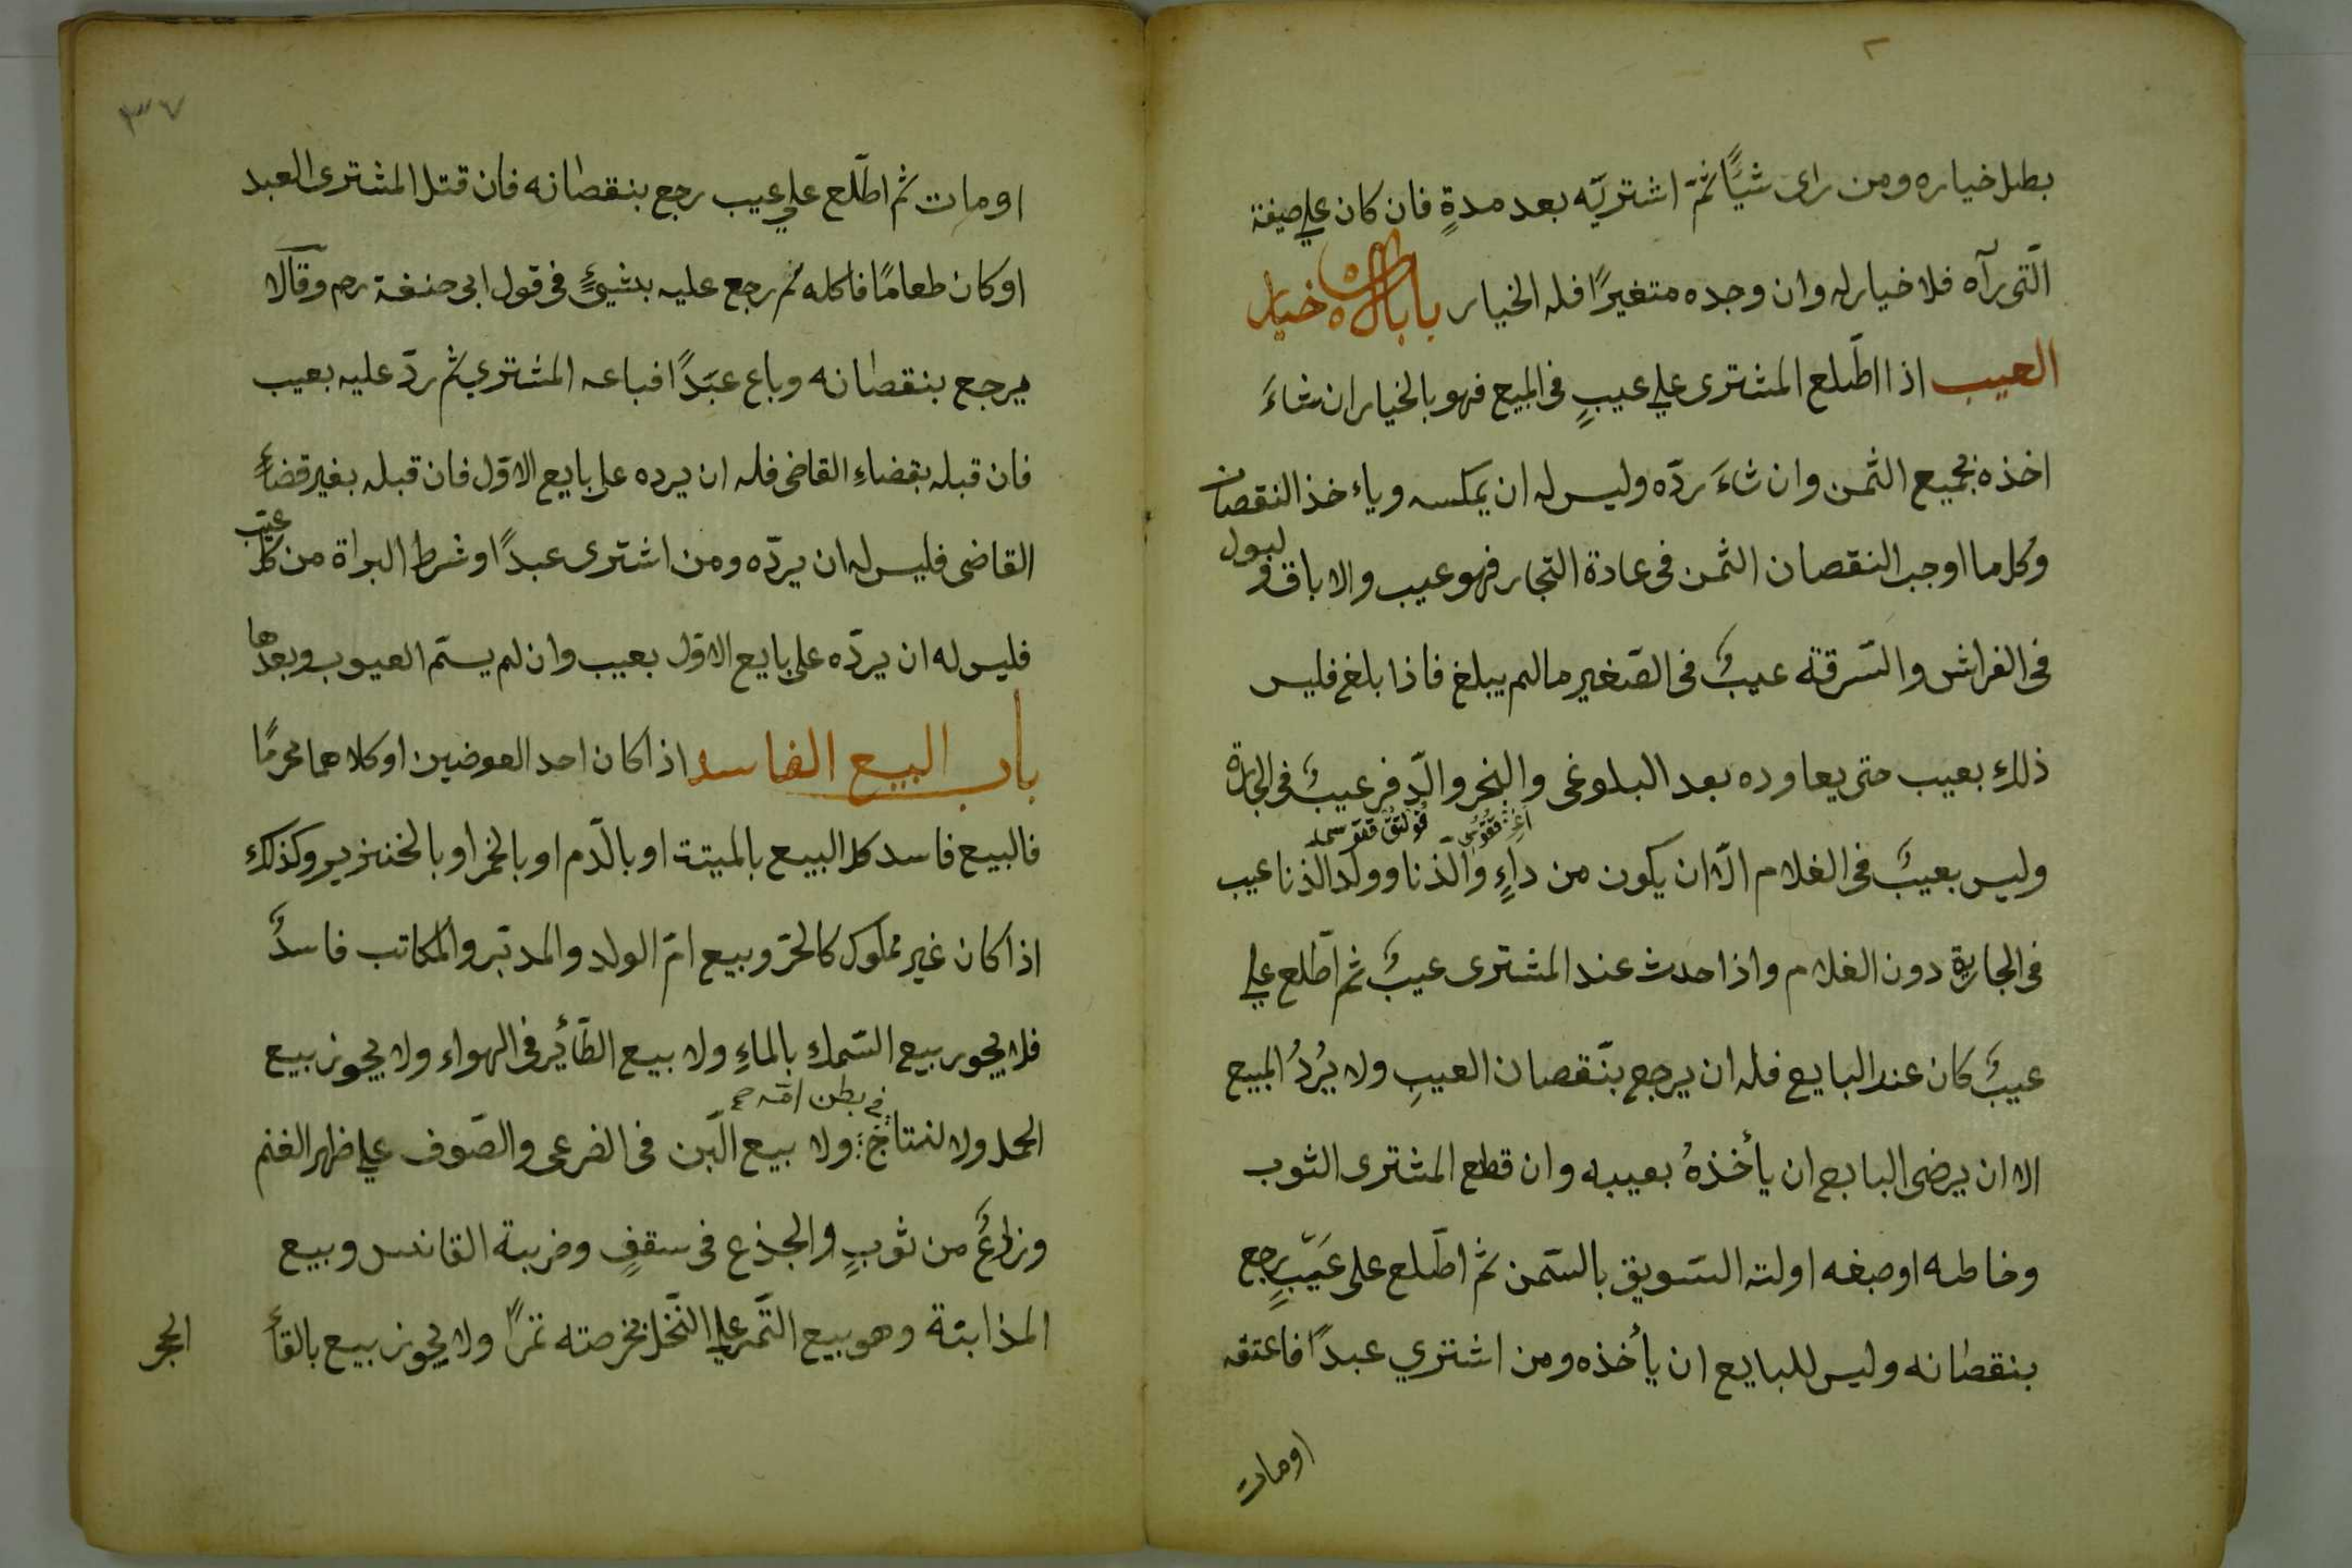 بطل خياره ومن راى شئًا ثمّ اشتريّه بعد مدةٍ فان كان علي صيفة
الّتى رآه فلا خيار له وان وجده متغيرًا فله الخيار باب خيار
العيب اذا اطّلع المشترى علي عيبٍ فى المبيع فهو بالخيار ان شاءَ
اخذه بجميع الثمن وان شاءَ ردّه وليس له ان يمكسه وياء خذ النقصان
وكل ما اوجب النقصان الثمن فى عادة التجار فهو عيب والاباق ولبول
فى الفراش والسّرقة عيبٌ فى الصّغير مالم يبلغ فاذا بلغ فليس
ذلك بعيب حتى يعاوده بعد البلوغى والبخر والدّفر عيبٌ فى الجارة
وليس بعيبٌ فى الغلام الّا ان يكون من داءٍ والذنا وولد الذنا عيب
فى الجارية دون الغلام واذا حدث عند المشترى عيبٌ ثم اطّلع علي
عيبٌ كان عند البايع فله ان يرجع بنّقصان العيبِ ولا يُردُ المبيع
الا ان يرضى البايع ان يأخذهُ بعيبه وان قطع المشترى الثوب
وخاطه اوصبغه اولته السّويق بالسّمن ثم اطّلع على عَيبٍ رجع
بنقصانه وليس للبايع ان يأخذه ومن اشتري عبدًا فاعتقه
اومات
٣٧
اومات ثم اطّلع علي عيب رجع بنقصانه فان قتل المشترى العبد
اوكان طعامًا فاكله لم رجع عليه بشيئٍ فى قول ابى حنفة رحم وقالا
يرجع بنقصانه وباع عبَدًا فباعه المشتري ثم ردّ عليه بعيب
فان قبله بقضاءِ القاضى فله ان يرده على بايع الاوّل فان قبله بغير قضاءٍ
القاضى فليس له ان يردّه ومن اشترى عبدًا وشرط البراة من كل عيب
فليس له ان يردّه على بايع الاوّل بعيب وان لم يسمّ العيوب وبعدها
باب البيع الفاسد اذا كان احد العوضين اوكلاهما محرمًا
فالبيع فاسد كل البيع بالميتة اوبالدّم اوبالخمر اوبالخنزير وكذلك
اذا كان غير مملوك كالحرّ وبيع امّ الولد والمدبّر والمكاتب فاسدٌ
فلا يجوز بيع السّمك بالماءِ ولا بيع الطّائر فى الهواء ولا يجوز بيع
فى بطن امّه صح
الحمل ولا لنتاج ولا بيع الّبن فى الضرعى والصّوف علي ظهر الغنم
وزلرعٌ من ثوبٍ والجذع فى سقفٍ وضربة القانس وبيع
المذابنة وهو بيع التّمر علي النّخل بخرصته تمرًا ولا يجوز بيع بالقأ
الحجر